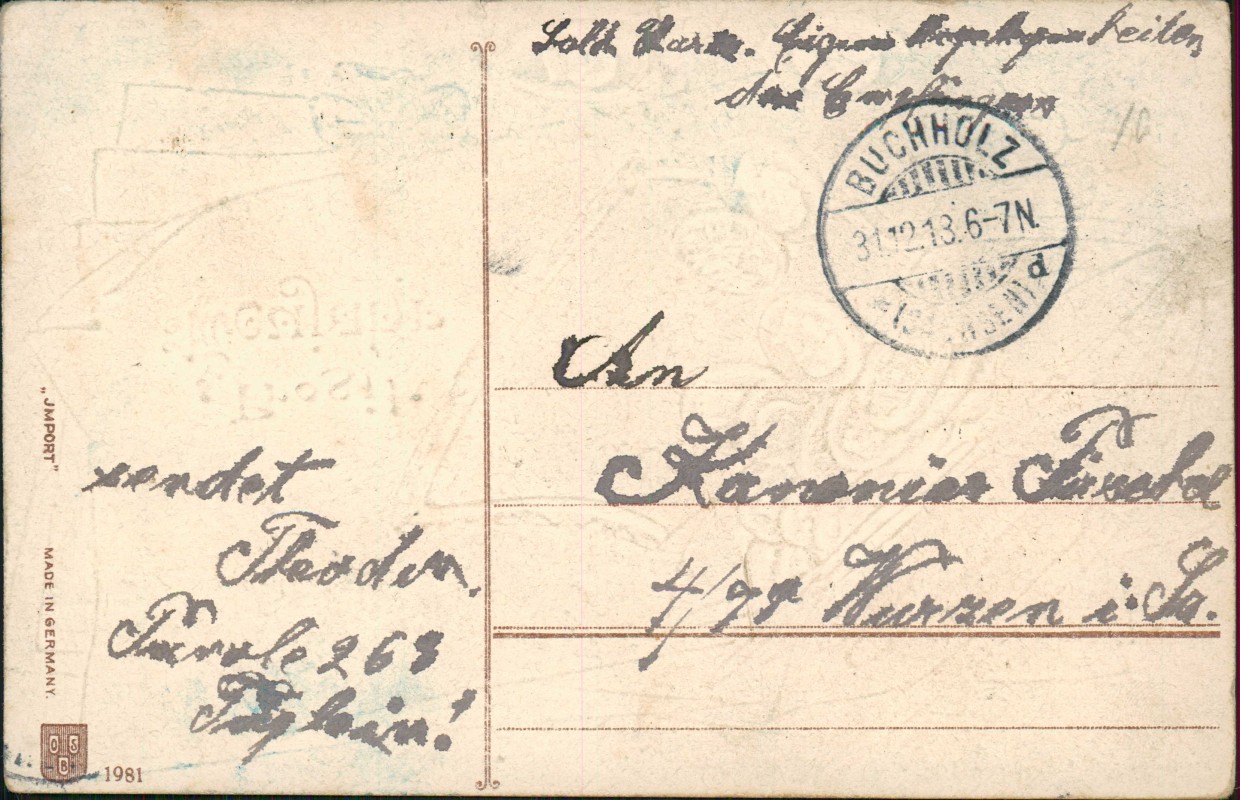 Sold. Karte. Eigene Angelegenheiten
des Empfängers
10
BUCHHOLZ
31.12.13.6-7N.
* (SACHSEN) d
An
Kanonier
4/78 Wurzen i. Sa.
sendet
Theodor.
Parole 263
"JMPORT"
MADE IN GERMANY.
O S B
1981